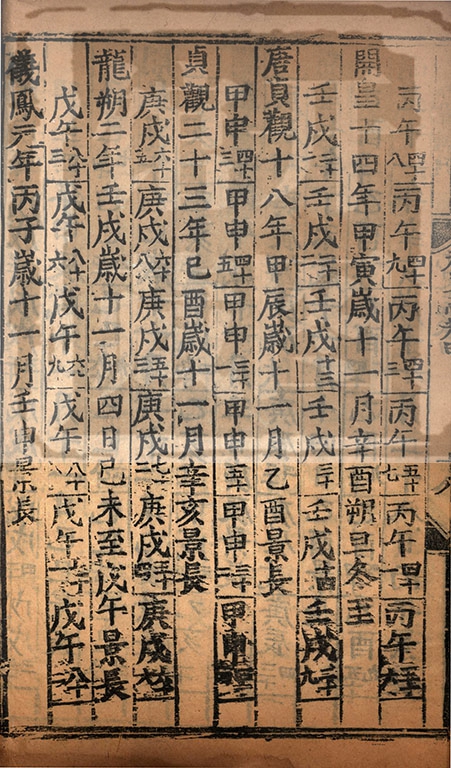 丙午四十八丙午四十九丙午四十丙午五十七丙午四十一丙午
開皇十四年甲寅歲十一月辛酉朔旦冬至
壬戌二十壬戌二十壬戌十三壬戌三十壬戌十四壬戌
唐貞觀十八年甲辰歲十一月乙酉景長
甲申四十三甲申四十五甲申三十一甲申五十甲申三十一甲申
貞觀二十三年己酉歲十一月辛亥景長
庚戌六十五庚戌六十八庚戌五十三庚戌七十二庚戌五十四庚戌
龍朔二年壬戌歲十一月四日己未至戊午景長
戊午八十三戊午八十六戊午六十九戊午八十八戊午戊午八十
儀鳳元年丙子歲十一月壬申景長